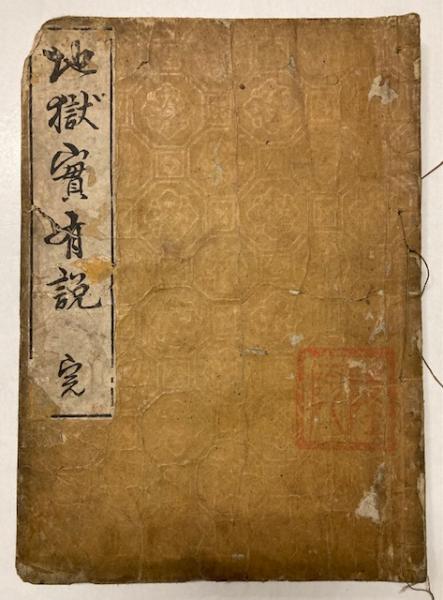 地獄實有説
完